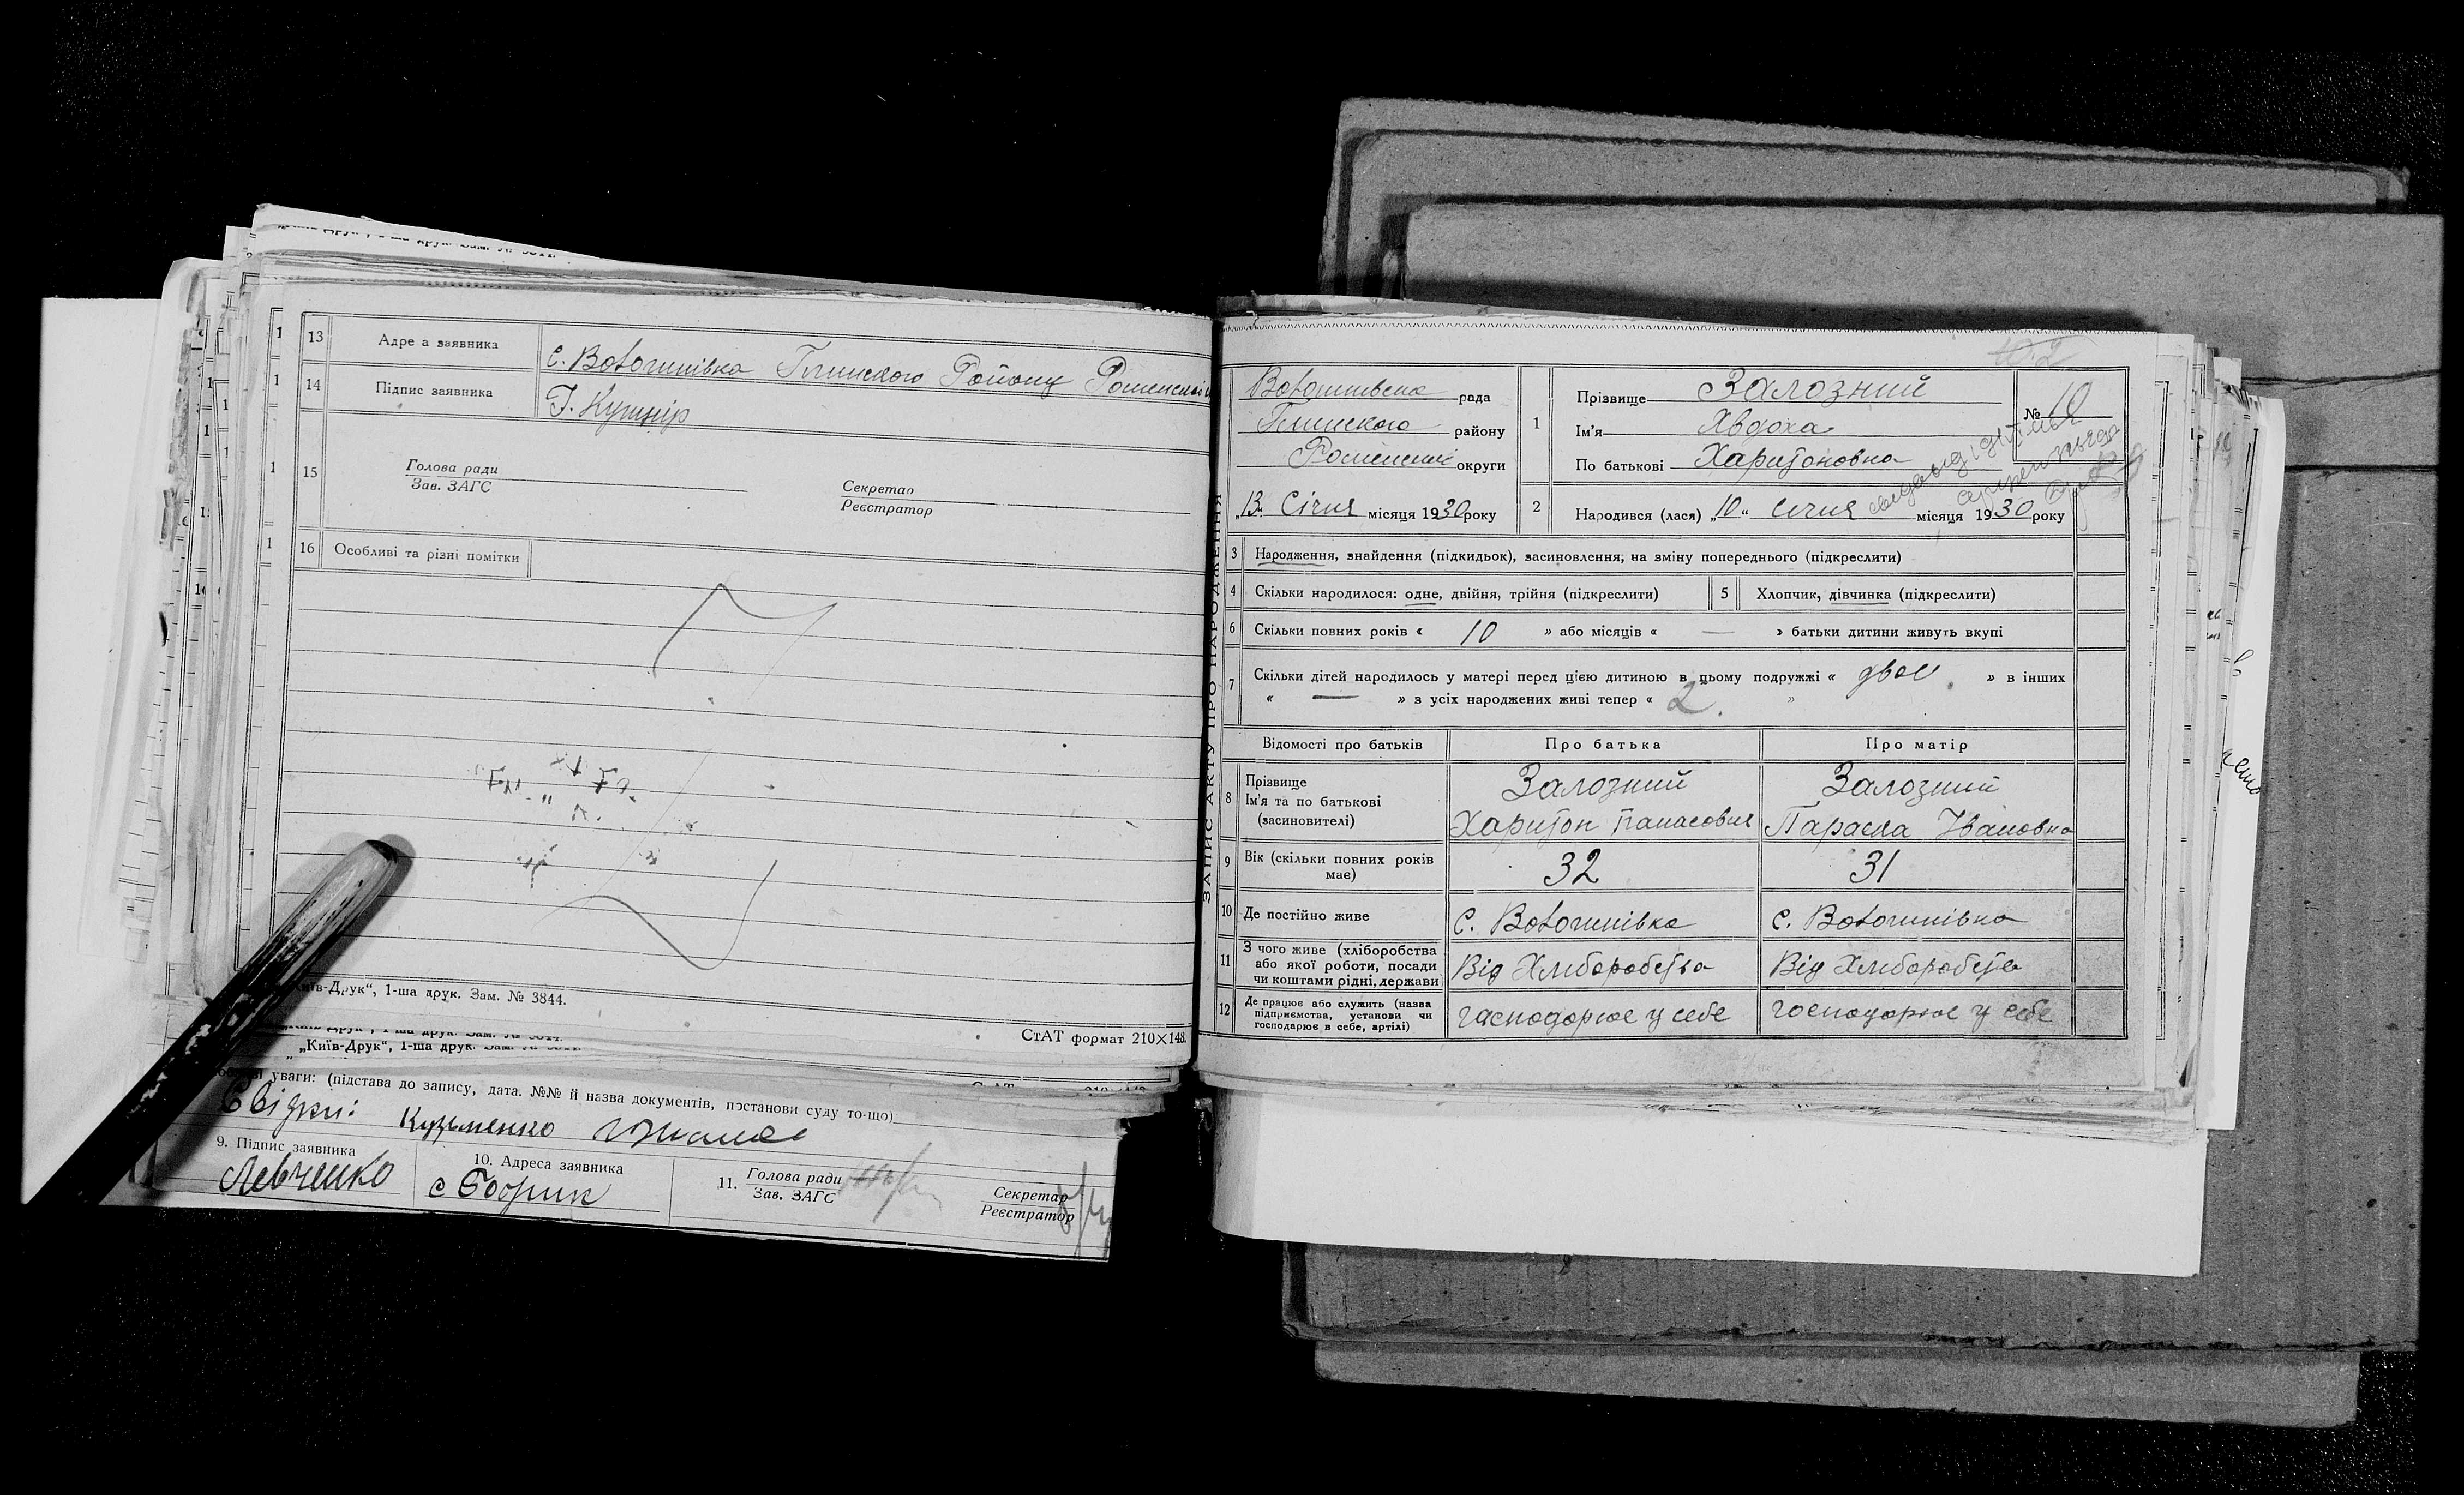 13 Адре а заявника с. Волошнівка Глинского Району Роменської
14 Підпис заявника Г. Кушнір
15 Голова ради
Зав. ЗАГС
Секретар
Реєстратор
16 Особливі та різні помітки
„Київ-Друк“, 1-ша друк. Зам. № 3844.
СтАТ формат 210×148.
„Київ-Друк“, 1-ша друк.
уваги: (підстава до запису, дата. №№ й назва документів, постанови суду то-що)
Свідки: Кузьменко
9. Підпис заявника
Левченко
10. Адреса заявника
11. Голова ради
Зав. ЗАГС
Секретар
Реєстратор
ЗАПИС АКТУ ПРО НАРОДЖЕННЯ
Волошнівська рада
Глинского району
Роменської округи
„13“ Січня місяця 1930 року
1 Прізвище Залозний
Ім'я Хвдоха
По батькові Харитоновна
№ 10
2 Народився (лася) „10“ Січня місяця 1930 року
3 Народження, знайдення (підкидьок), засиновлення, на зміну попереднього (підкреслити)
4 Скільки народилося: одне, двійня, трійня (підкреслити) 5 Хлопчик, дівчинка (підкреслити)
6 Скільки повних років « 10 » або місяців « — » батьки дитини живуть вкупі
7 Скільки дітей народилось у матері перед цією дитиною в цьому подружжі « двоє » в інших
« — » з усіх народжених живі тепер « 2. »
Відомості про батьків Про батька Про матір
8 Прізвище
Ім'я та по батькові
(засиновителі)
Залозний
Харитон Панасович
Залозний
Параска Івановна
9 Вік (скільки повних років має) 32 31
10 Де постійно живе с. Волошнівка с. Волошнівка
11 З чого живе (хліборобства
або якої роботи, посади
чи коштами рідні, держави
Від Хліборобства Від Хліборобства
12 Де працює або служить (назва
підприємства, установи чи
господарює в себе, артілі)
господорює у себе господорює у себе